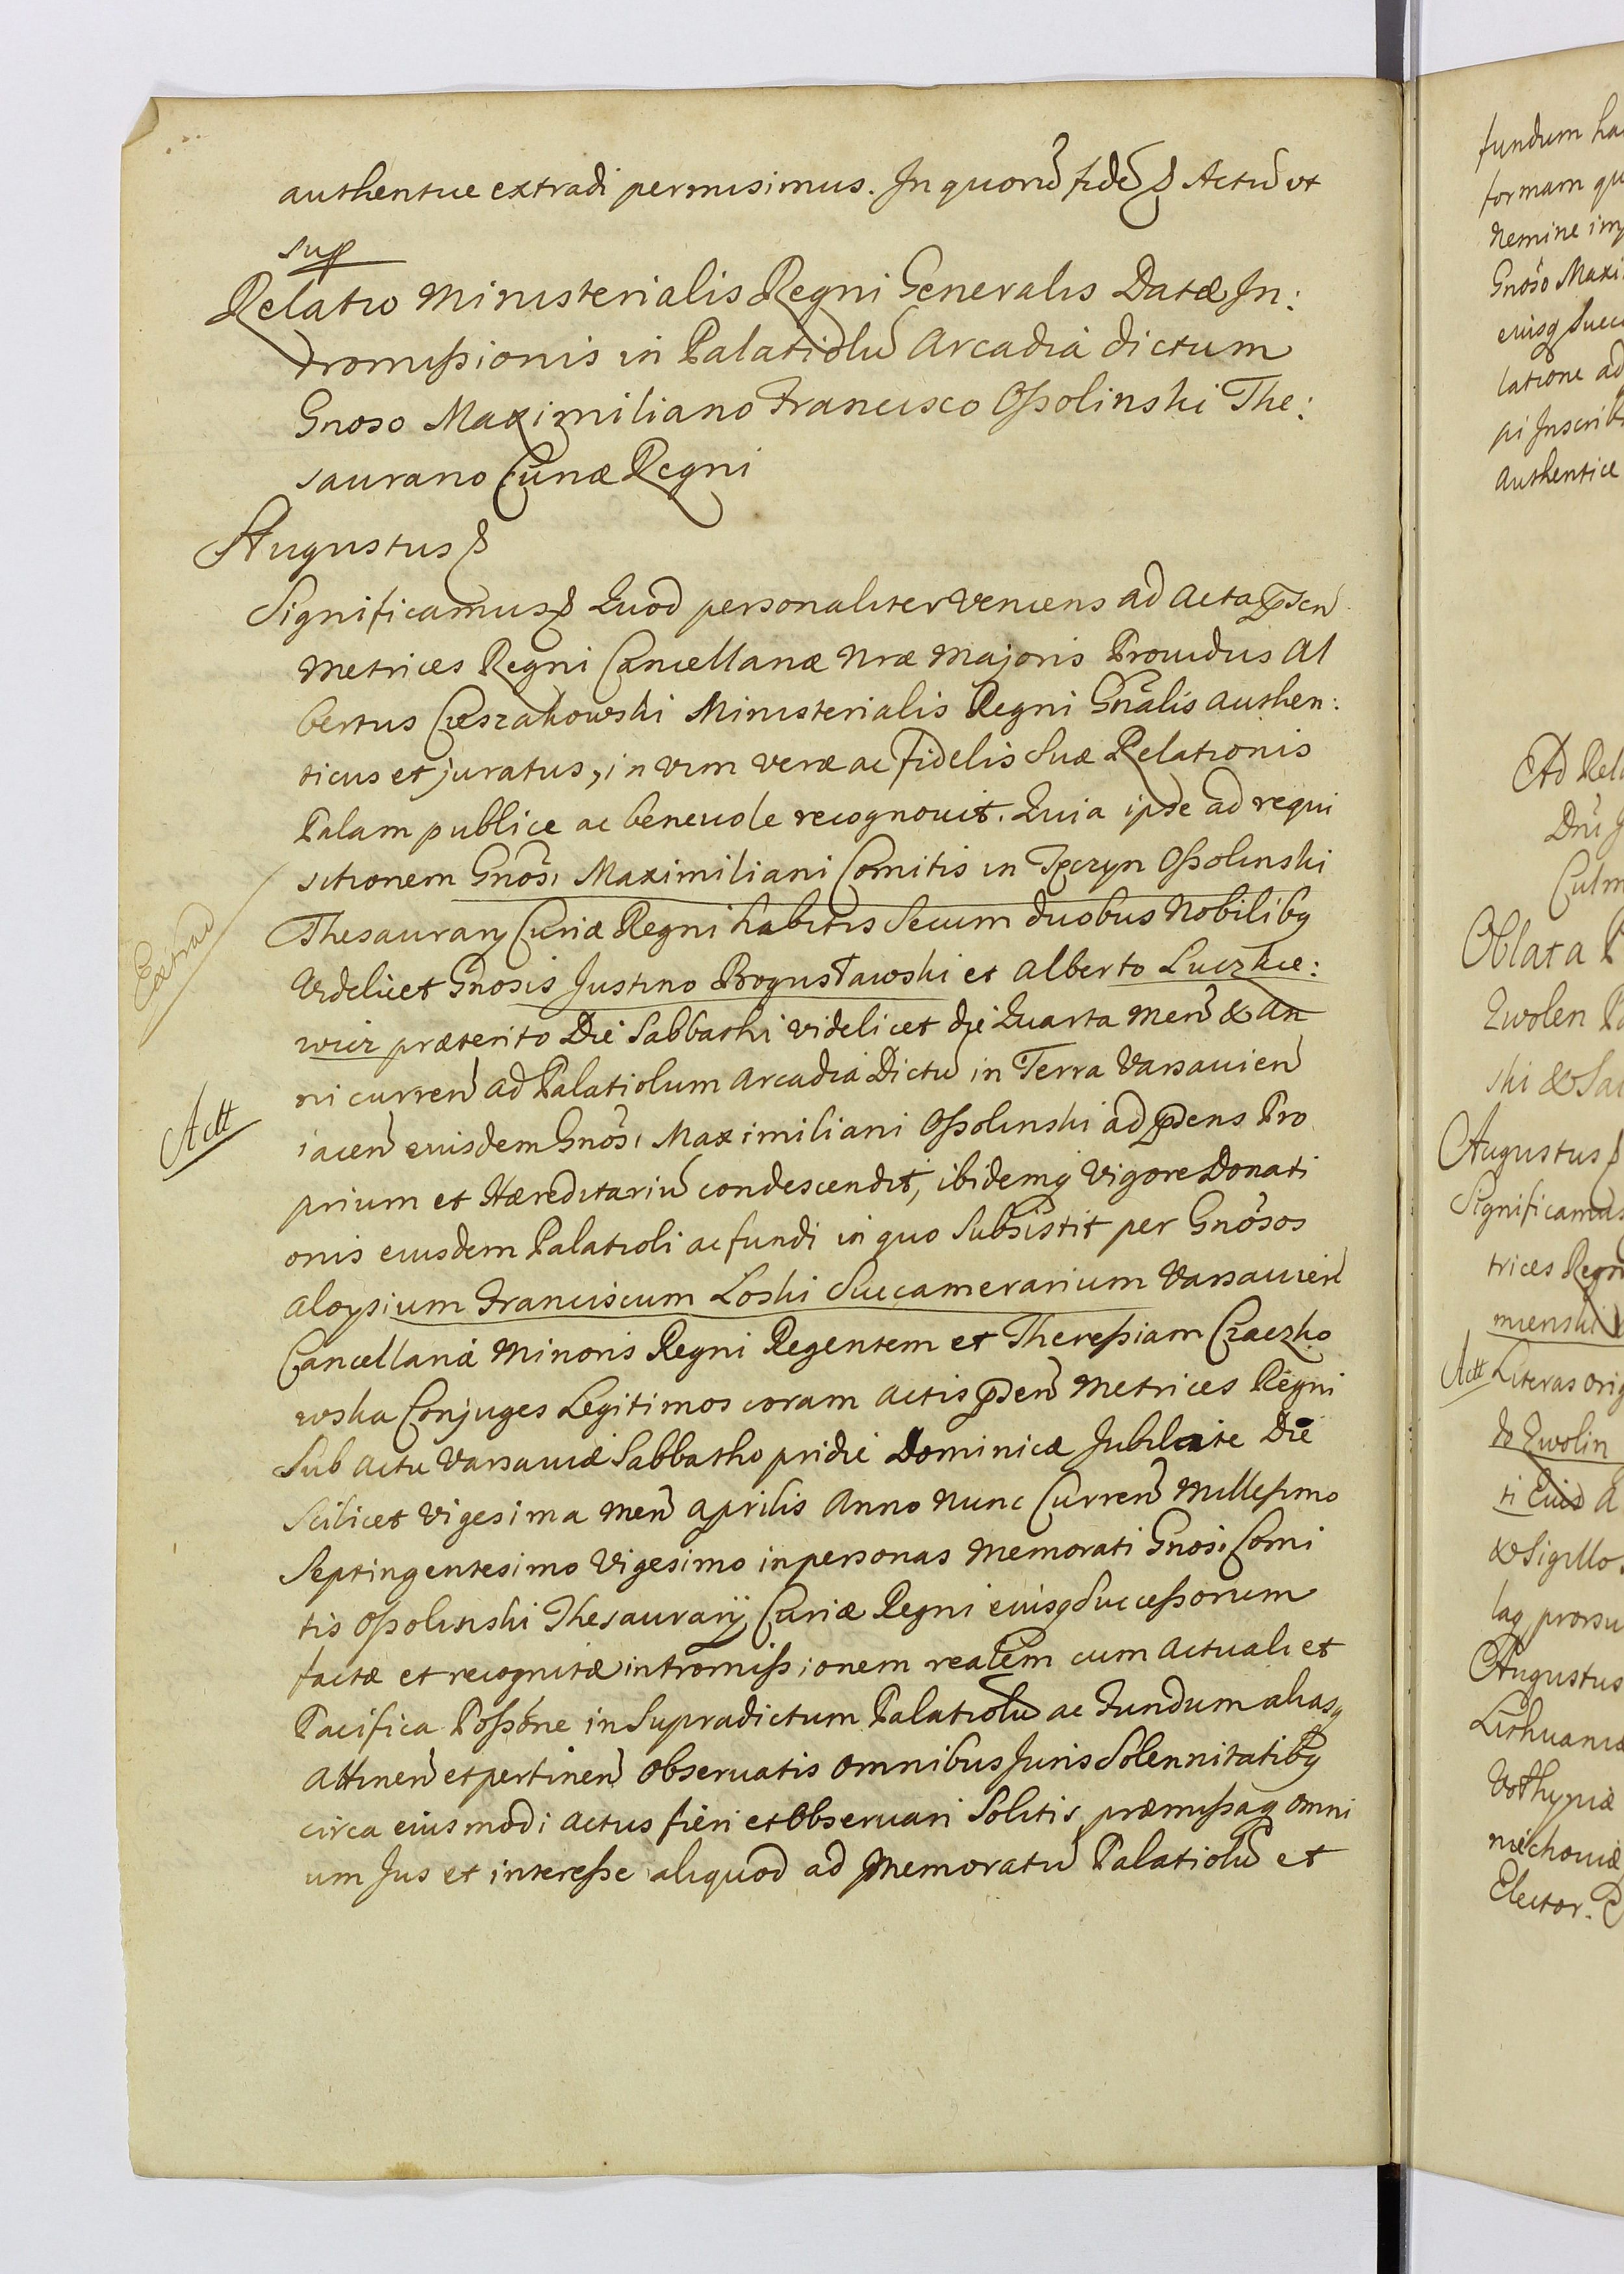 authentice extradi permisimus. In quorũ fidẽ & Actũ ut
sup
Relatio Ministerialis Regni Generalis Datæ In:
tromissionis in Palatiolũ Arcadia dictum
Gnoso Maximiliano Francisco Ossolinski The:
saurario Curiæ Regni
Augustus &
Significamus & Quod personaliter veniens ad Acta prñ
Metrices Regni Cancellariæ Nræ Majoris Providus Al
bertus Cieszakowski Ministerialis Regni Gnãlis authen:
ticus et juratus, in vim veræ ac fidelis Suæ Relationis
Palam publice ac benevole recognovit. Quia ipse ad requi
sitionem Gnõsi Maximiliani Comitis in Tęczyn Ossolinski
Thesaurarij Curiæ Regni habitis Secum duobus Nobilibq
Videlicet Gnosis Justino Bogusławski et Alberto Luczkie:
wicz præterito Die Sabbathi videlicet die Quarta Menẽ & An
ni curreñ ad Palatiolum Arcadia Dictũ in Terra Varsavieñ
iaceñ eiusdem Gnõsi Maximiliani Ossolinski ad præns Pro
prium et Hæreditariũ condescendit, ibidemq Vigore Donati
onis eiusdem Palatioli ac fundi in quo Subsistit per Gnõsos
Aloysium Franciscum Loski Succamerarium Varsavieñ
Cancellariæ Minoris Regni Regentem et Theressiam Czaczko
wska Conjuges Legitimos coram Actis præñ Metrices Regni
Sub actu Varsaviæ Sabbatho pridie Dominicæ Jubilate Die
Scilicet Vigesima Meñ Aprilis Anno Nunc Curreñ Millesimo
Septingentesimo Vigesimo in personas Memorati Gnosi Comi
tis Ossolinski Thesaurarij Curiæ Regni eiusq Successorum
factæ et recognitæ intromissionem realem cum Actuali et
Pacifica Possõne in Supradictum Palatiolũ ac Fundum aliasq
Attineñ et pertineñ Observatis Omnibus Juris Solennitatibq
circa eiusmodi Actus fieri et Observari Solitis præmissaq Omni
um Jus et interesse aliquod ad Memoratũ Palatiolũ et
Extrad
Act
fundum ha
formam qu
Nemine im
Gnõso Maxi
eiusq Succ
latione ad
pi Inscrib
Authentice
Ad Rela
Dni J
Culm
Oblata P
Zwolen P
ski & Sa
Augustus &
Significamus
trices Regn
mienski
Act Literas orig
de Zwolin
ti Eius A
& Sigillo
laq prorsu
Augustus
Lithuaniæ
Volhyniæ
niechoviæ
Elector. P